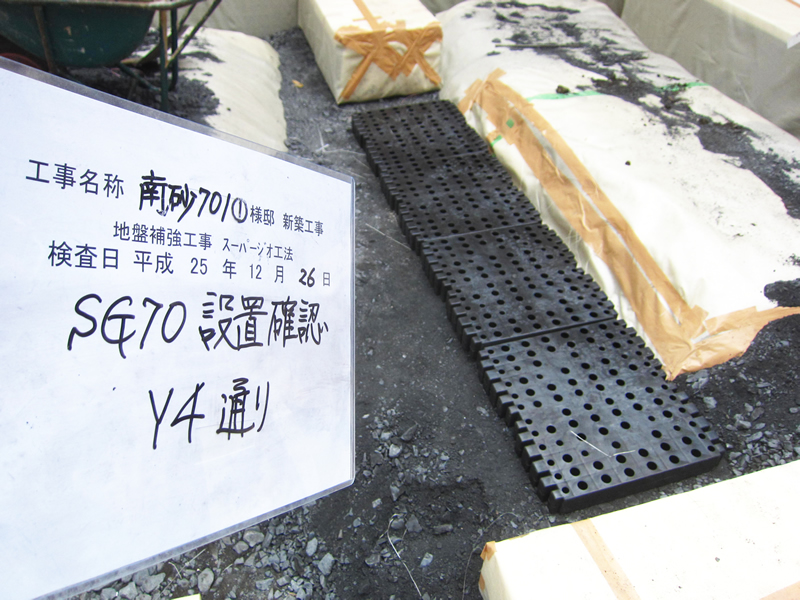 工事名称 南砂701①様邸 新築工事
地盤補強工事 スーパージオ工法
検査日 平成 25 年 12 月 26 日
SG70 設置確認
Y4 通り